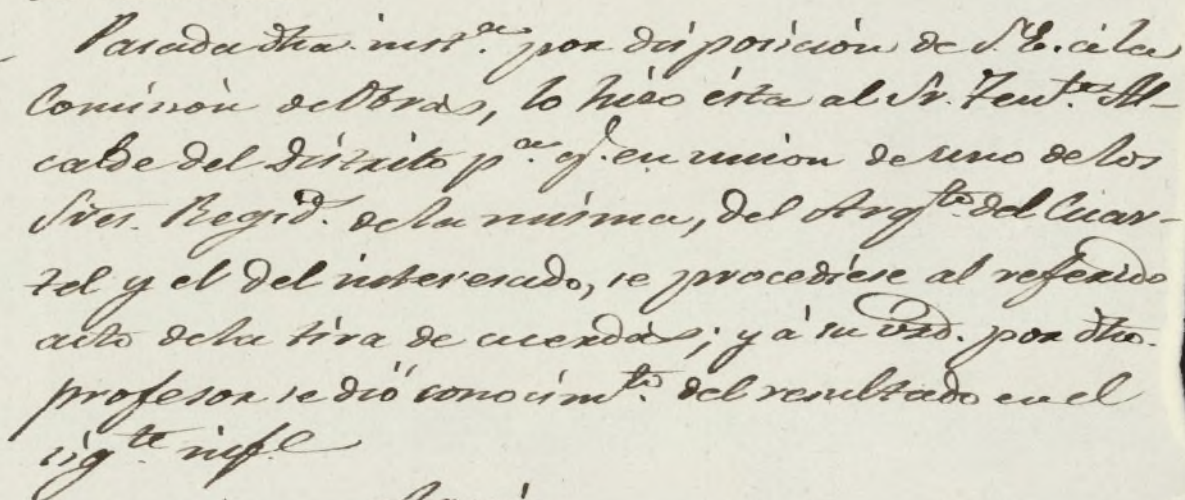 Pasada dha. inst.ª por disposición de S.E. á la
Comision de Obras, lo hizo ésta al Sr. Tent.e Al-
calde del Distrito p.ª q.e en union de uno de los
Sres. Regid.s de la misma, del Arq.to del Cuar-
tel y el del interesado, se procediese al referido
acto de la tira de cuerdas; y á su por dho.
profesor se dió conocim.to del resultado en el
sig.te inf.e